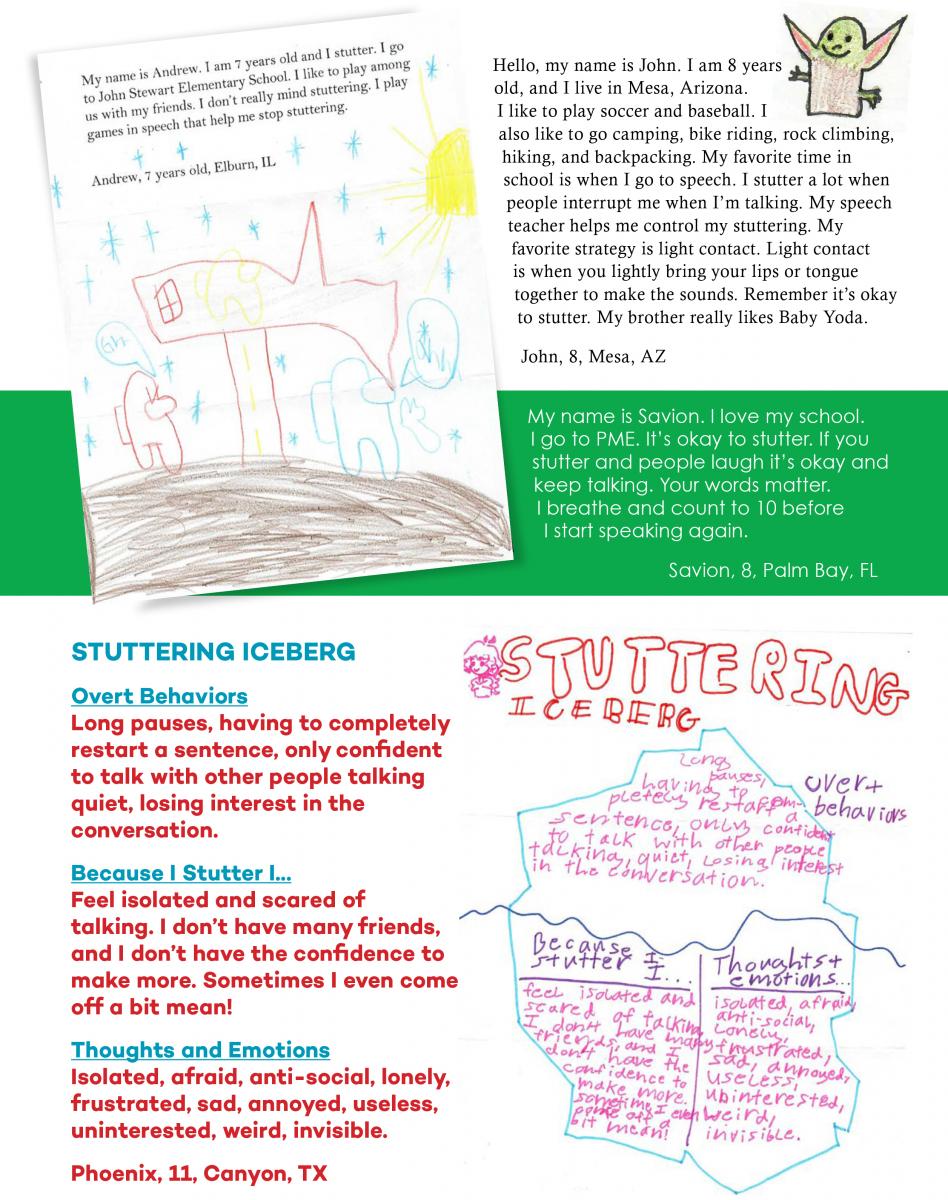 My name is Andrew. I am 7 years old and I stutter. I go
to John Stewart Elementary School. I like to play among
us with my friends. I don't really mind stuttering. I play
games in speech that help me stop stuttering.
Andrew, 7 years old, Elburn, IL
Hello, my name is John. I am 8 years
old, and I live in Mesa, Arizona.
I like to play soccer and baseball. I
also like to go camping, bike riding, rock climbing,
hiking, and backpacking. My favorite time in
school is when I go to speech. I stutter a lot when
people interrupt me when I'm talking. My speech
teacher helps me control my stuttering. My
favorite strategy is light contact. Light contact
is when you lightly bring your lips or tongue
together to make the sounds. Remember it's okay
to stutter. My brother really likes Baby Yoda.
John, 8, Mesa, AZ
My name is Savion. I love my school.
I go to PME. It's okay to stutter. If you
stutter and people laugh it's okay and
keep talking. Your words matter.
I breathe and count to 10 before
I start speaking again.
Savion, 8, Palm Bay, FL
STUTTERING ICEBERG
Overt Behaviors
Long pauses, having to completely
restart a sentence, only confident
to talk with other people talking
quiet, losing interest in the
conversation.
Because I Stutter I...
Feel isolated and scared of
talking. I don't have many friends,
and I don't have the confidence to
make more. Sometimes I even come
off a bit mean!
Thoughts and Emotions
Isolated, afraid, anti-social, lonely,
frustrated, sad, annoyed, useless,
uninterested, weird, invisible.
Phoenix, 11, Canyon, TX
STUTTERING
ICEBERG
Long
pauses,
having to com-
pletely restart a
sentence, only confident
to talk with other people
talking, quiet, Losing interest
in the conversation.
overt
behaviors
Because I
stutter I...
feel isolated and
scared of talking
I don't have many
friends, and I
don't have the
confidence to
make more.
sometimes I even
come off a
bit mean!
Thoughts +
emotions...
isolated, afraid
anti-social,
Lonely,
frustrated,
sad, annoyed,
useless,
unbinterested,
weird,
invisible.